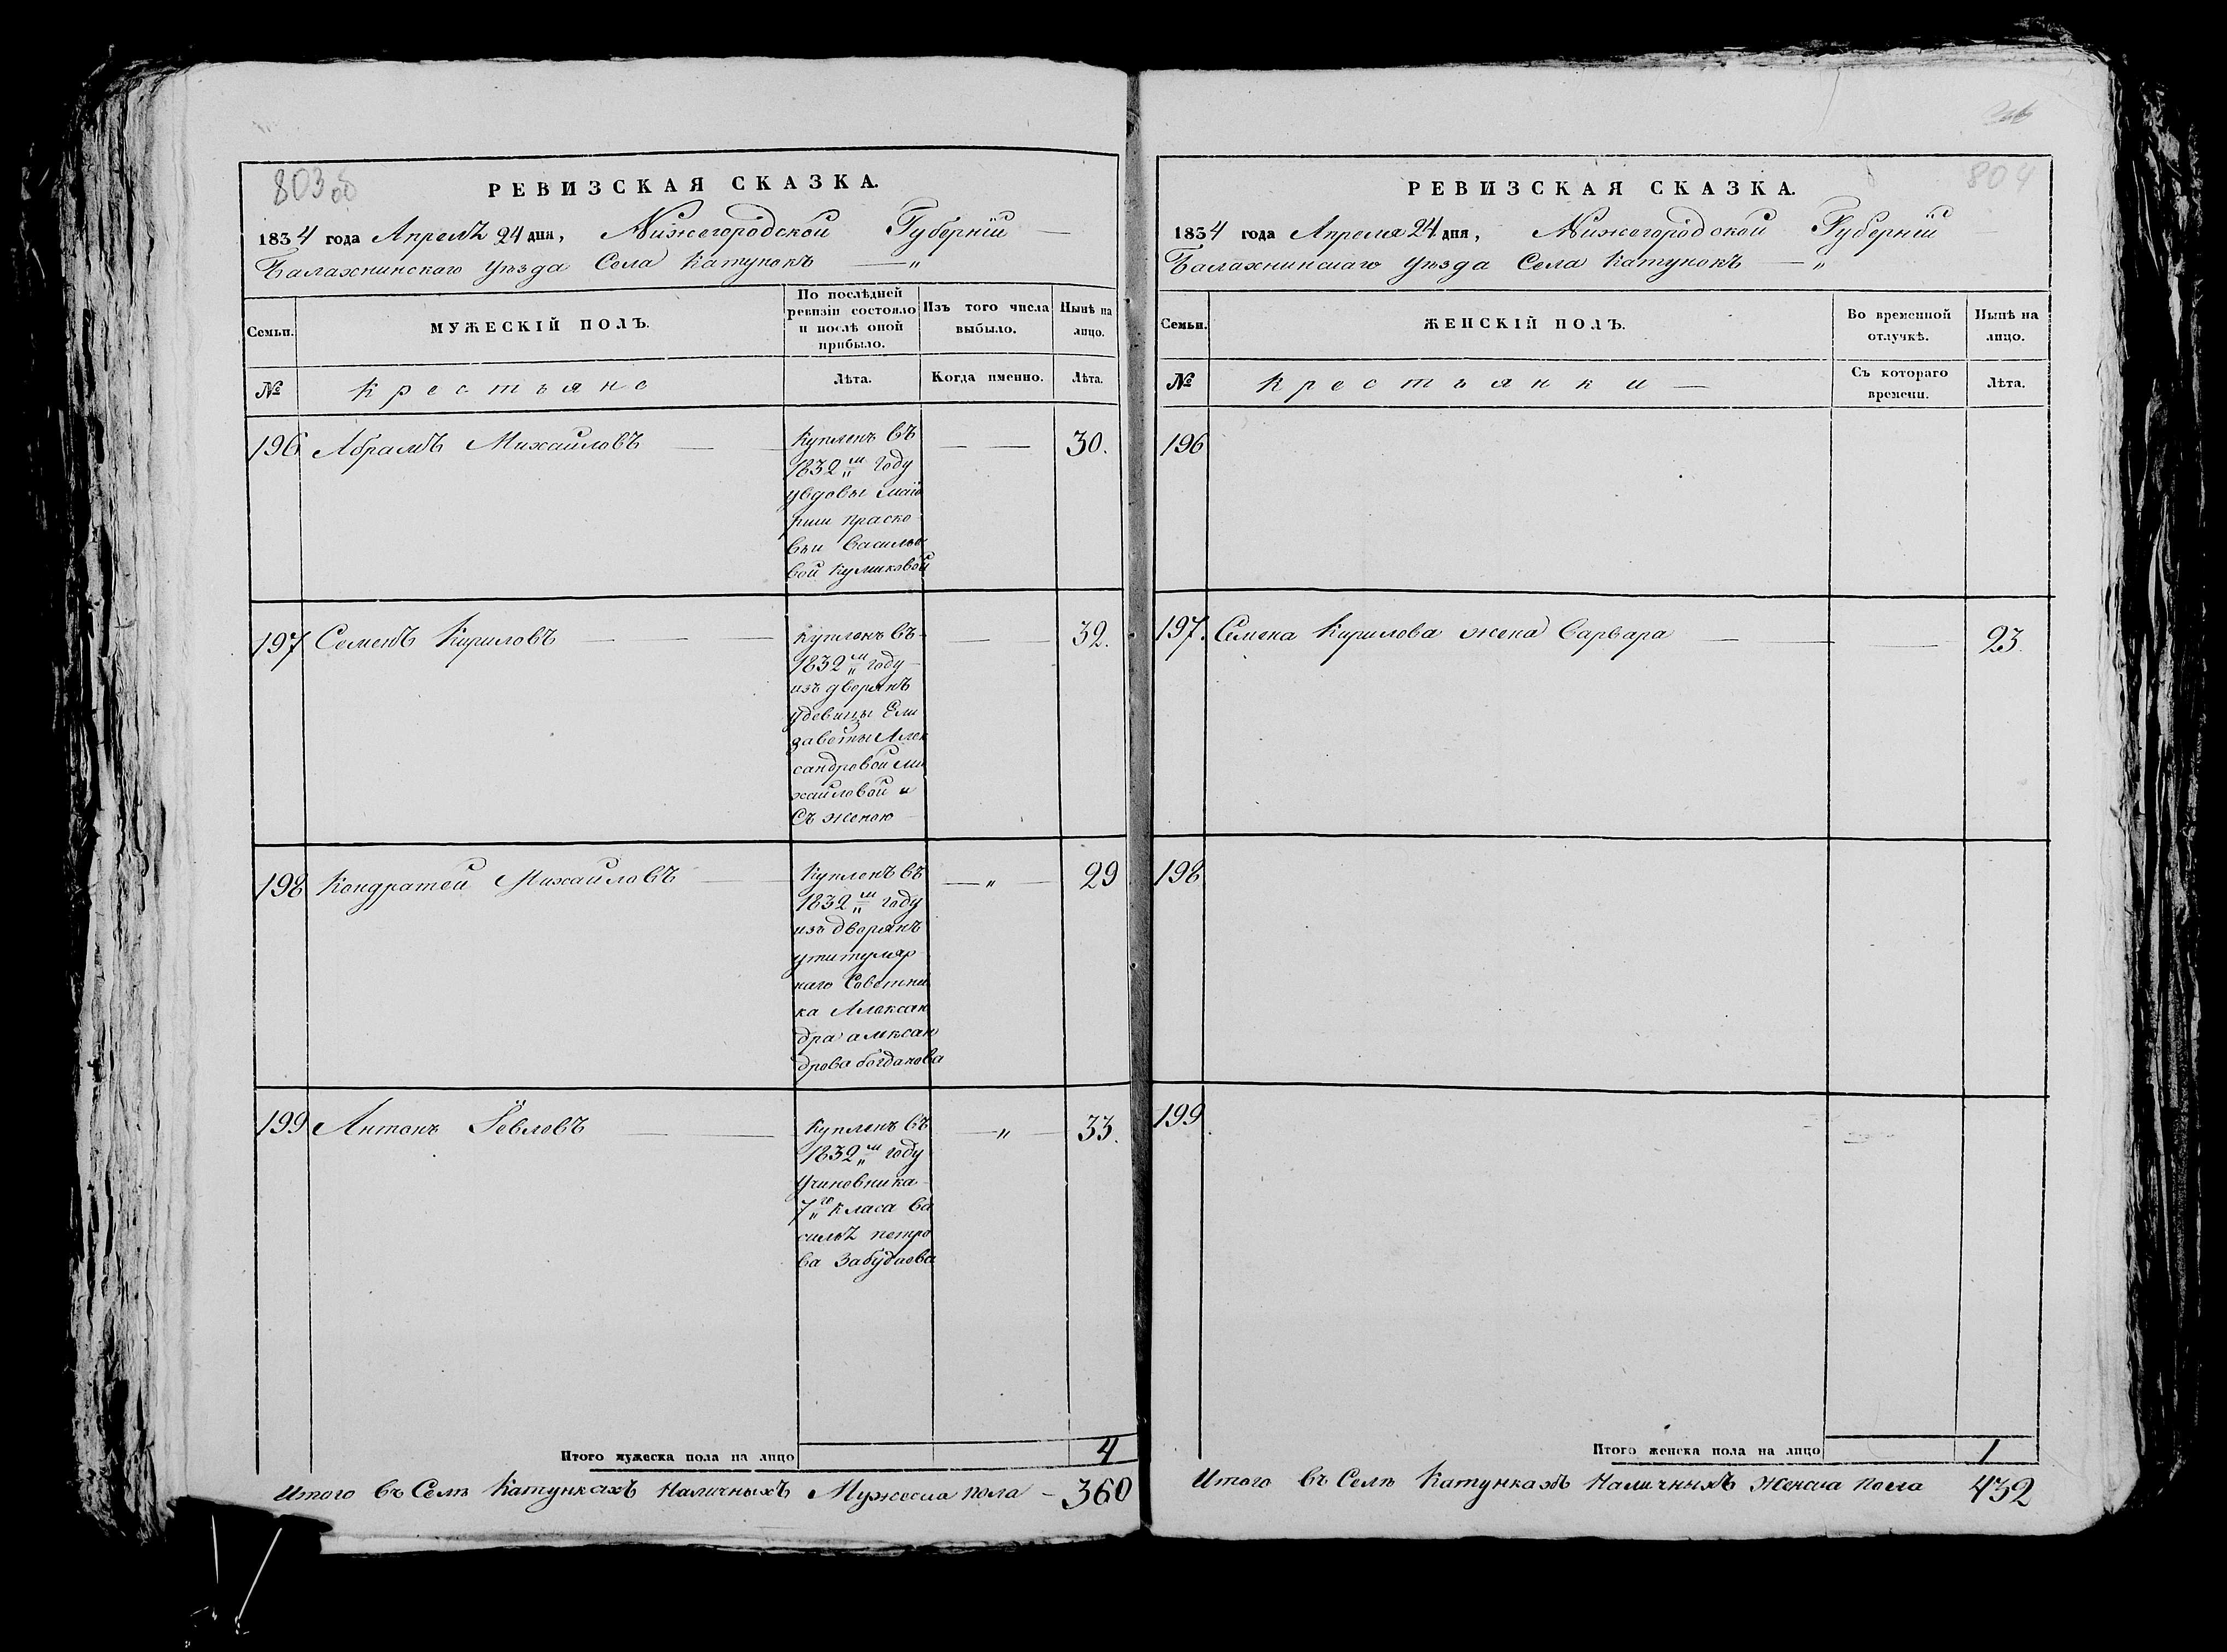 803 об
РЕВИЗСКАЯ СКАЗКА.
1834 года Апрелѣ 24 дня, Нижегородской Губерніи
Балахнинскаго уѣзда Села Катунокъ
Семьи.
МУЖЕСКІЙ ПОЛЪ.
По послѣдней
ревизіи состояло
и послѣ оной
прибыло.
Изъ того числа
выбыло.
Нынѣ на
лицо.
№
Крестьяне
Лѣта.
Когда именно.
Лѣта.
196 Абрамъ Михайловъ
Купленъ въ
1832м году
увдовы маїо
рши Праско
вьи Василье
вой Куликовой
30.
197 Семенъ Кириловъ
Купленъ въ
1832м году
изъ дворянъ
удевицы Ели
заветы Алек
сандровой Ми
хайловой и
Съ женою
32.
198 Кондратей Михайловъ
Купленъ въ
1832м году
изъ дворянъ
утитуляр
наго Советни
ка Алексан
дра алексан
дрова богданова
29
199 Антонъ
Купленъ въ
1832м году
учиновника
7го класа Ва
сильѣ петро
ва
33.
Итого мужеска пола на лицо 4
Итого въ Селѣ Катункахъ Наличныхъ Мужеска пола - 360
804
РЕВИЗСКАЯ СКАЗКА.
1834 года Апреля 24 дня, Нижегородской Губерніи
Балахнинскаго уѣзда Села Катунокъ
Семьи.
ЖЕНСКІЙ ПОЛЪ.
Во временной
отлучкѣ.
Нынѣ на
лицо.
№
Крестьянки
Съ котораго
времени.
Лѣта.
196
197. Семена Кирилова жена Варвара 23.
198
199
Итого женска пола на лицо 1
Итого въ Селѣ Катункахъ Наличныхъ Женска пола 432